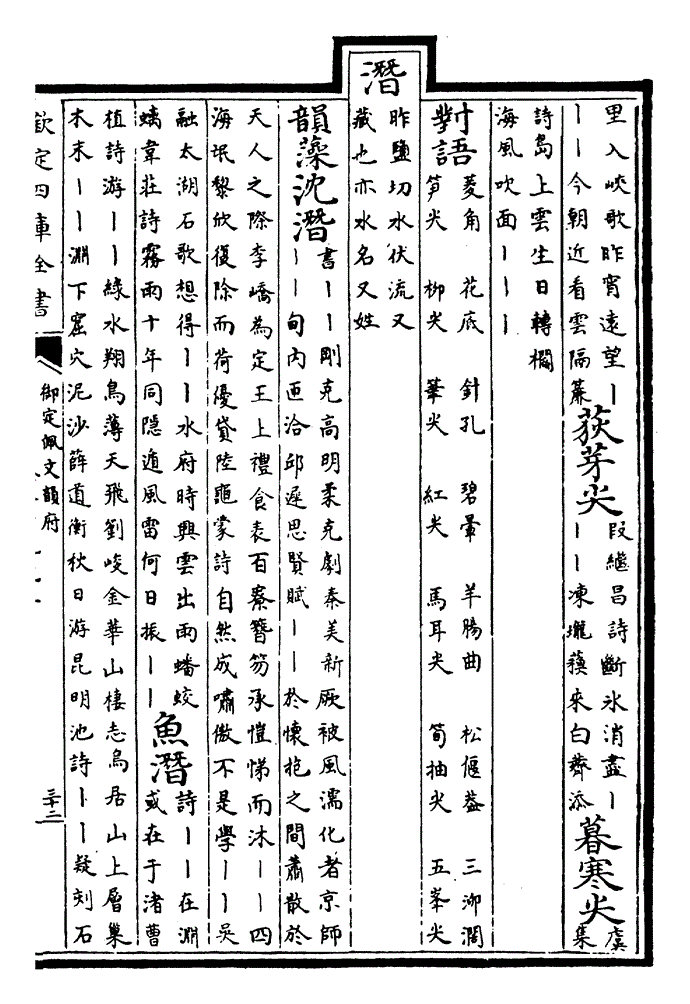 里入峽歌昨宵遠望丨
丨丨今朝近看雲隔簾
荻芽尖
段繼昌詩斷氷消盡丨
丨丨凍壠蘋來白薺添
暮寒尖
虞
集
詩島上雲生日轉欄
海風吹面丨丨丨
對語
菱角 花底 針孔 碧暈 羊腸曲 松偃葢 三泖濶
笋尖 柳尖 筆尖 紅尖 馬耳尖 筍抽尖 五峯尖
潛
昨鹽切水伏流又
藏也亦水名又姓
韻藻沈潛
書丨丨剛克高明柔克劇秦美新厥被風濡化者京師
丨丨甸内匝洽邱遲思賢賦丨丨於懷抱之間蕭散於
天人之際李嶠為定王上禮食表百寮簪笏承愷悌而沐丨丨四
海氓黎欣復除而荷優貸陸龜蒙詩自然成嘯傲不是學丨丨吳
融太湖石歌想得丨丨水府時興雲出雨蟠蛟
螭韋莊詩霧雨十年同隱遁風雷何日振丨丨
魚潛
詩丨丨在淵
或在于渚曹
植詩游丨丨綠水翔鳥薄天飛劉峻金華山棲志鳥居山上層巢
木末丨丨淵下窟穴泥沙薛道衡秋日游昆明池詩丨丨疑刻石
欽定四庫全書
御定佩文韻府
三十二